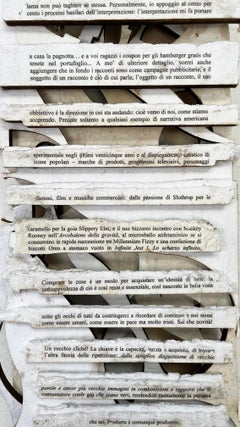 lama non può tagliare se stessa. Personalmente, io appoggio al cento per
cento i processi basilari dell'interpretazione: l'interpretazione mi fa portare
a casa la pagnotta... e a voi ragazzi i coupon per gli hamburger gratis che
tenete nel portafoglio... A mo' di ulteriore dettaglio, vorrei anche
aggiungere che in fondo i racconti sono come campagne pubblicitarie; e il
soggetto di un racconto è ciò di cui parla; l'oggetto di un racconto, il suo
obbiettivo è la direzione in cui sta andando: cioè verso di noi, come stiamo
scoprendo. Pensate soltanto a qualsiasi esempio di narrativa americana
sperimentale negli ultimi venticinque anni e al dispiegamento artistico di
icone popolari – marche di prodotti, programmi televisivi, personaggi
famosi, film e musiche commerciali: dalla passione di Slothrop per le
caramelle per la gola Slippery Elm, e il suo bizzarro incontro con Mickey
Rooney nell'Arcobaleno della gravità, al microbollo anfetaminico se si
consumano in rapida successione tre Millennium Fizzy e una confezione di
biscotti Oreo a stomaco vuoto in Infinite Jest
Comprare le cose è un modo per acquisire un'identità di
consapevolezza di ciò è così reale e essenziale, così nascosto in bella vista
sotto gli occhi di tutti da costringerci a ricordare di continuo
come essere umani, come essere in pace ma molto tristi. Sai che novità!
Un vecchio cliché? La chiave è la capacità, acquisita, di trovare
l'altra faccia della ripetizione: della semplice disposizione di vecchie
parole e ancor più vecchie immagini in combinazioni e rapporti che il
consumatore crede già che siano veri, rendendoli nuovamente
che sei. Produrre è comunque produrre.